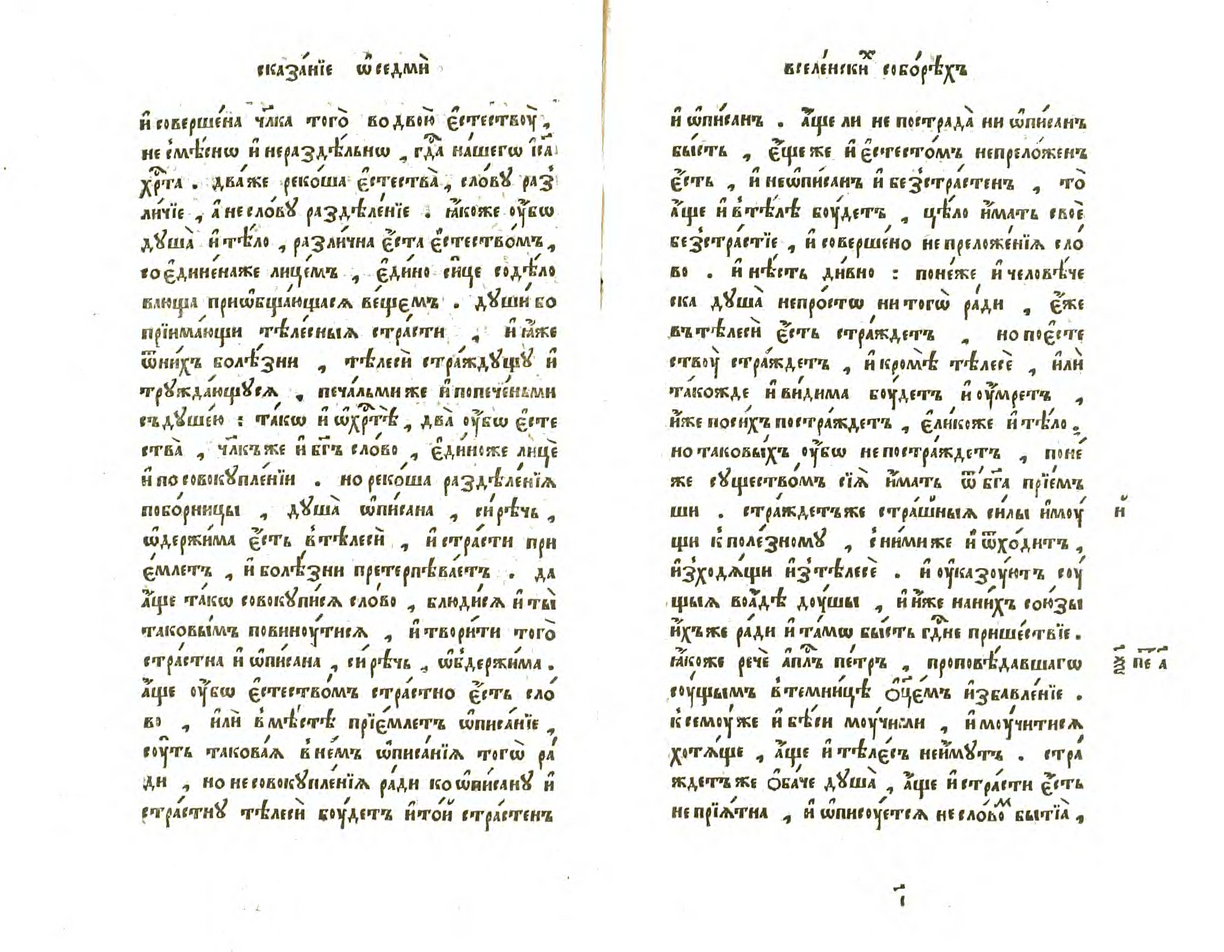 сказа́нїе ѡ҆ седмѝ
и҆ совершє́на чл҃ка того̀ во двою̀ є҆стествоу̀ ,
не смѣ́снѡ и҆ нераздѣ́льнѡ , гдⷭ҇а на́шегѡ і҆са
хрⷭ҇та . два́ же реко́ша є҆стества̀ , сло́вꙋ раз̾
ли́чїе , а҆ не сло́вꙋ раздѣле́нїе . ꙗ҆́коже оу҆́бѡ
дꙋша̀ и҆ тѣ́ло , разли́чна є҆́ста є҆стество́мъ ,
соедине́на же лице́мъ , є҆ди́но си́це содѣ́ло
вающа приѡбща́ющаѧсѧ ве́щемъ . дꙋши́ бо
прїима́ющи тѣле́сныѧ стра́сти , и҆ ꙗ҆́же
ѿ ни́хъ болѣ́зни , тѣлесѝ стра́ждꙋщꙋ и҆
трꙋжда́ющꙋсѧ , печа́льми же и҆ попече́ньми
съ дꙋше́ю : та́кѡ и҆ ѡ҆ хрⷭ҇тѣ̀ , два̀ оу҆́бѡ є҆сте
ства̀ , чл҃къ же и҆ бг҃ъ сло́во , є҆ди́но же лицѐ
и҆ по совокꙋпле́нїи . но реко́ша раздѣле́нїѧ
побо́рницы , дꙋша̀ ѡ҆пи́сана , си́рѣчь ,
ѡ҆держи́ма є҆́сть в̾ тѣлесѝ , и҆ стра́сти прі
е́млетъ , и҆ болѣ́зни претерпѣва́етъ . да
а҆́ще та́кѡ совокꙋпи́сѧ сло́во , блюди́сѧ и҆ ты̀
таковы́мъ повиноу́тисѧ , и҆ твори́ти того̀
стра́стна и҆ ѡ҆пи́сана , си́рѣчь , ѡ҆бдержи́ма .
а҆́ще оу҆́бѡ є҆стество́мъ стра́стно є҆́сть сло́
во , и҆лѝ в̾мѣ́стѣ прїе́млетъ ѡ҆писа́нїе ,
соу́ть такова́ѧ в̾ не́мъ ѡ҆писа́нїѧ тогѡ̀ ра́
ди , но не совокꙋпле́нїѧ ра́ди ко ѡ҆пи́санꙋ и҆
стра́стнꙋ тѣлесѝ боу́детъ и҆ то́й стра́стенъ
вселе́нскиⷯ собо́рѣхъ
и҆ ѡ҆пи́санъ . а҆́ще ли не пострада̀ ни ѡ҆пи́санъ
бы́сть , є҆ще́ же и҆ є҆стесто́мъ непрело́женъ
є҆́сть , и҆ неѡпи́санъ и҆ без̾стра́стенъ , то̀
а҆́ще и҆ в̾ тѣ́лѣ боу́детъ , цѣ́ло и҆́мать своѐ
без̾стра́стїе , и҆ соверше́но непреложе́нїѧ сло́
во . и҆ нѣ́сть ди́вно : поне́же и҆ человѣ́че
ска дꙋша̀ непро́стѡ ни тогѡ̀ ра́ди , є҆́же
въ тѣлесѝ є҆́сть стра́ждетъ , но по є҆сте
ствоу̀ стра́ждетъ , и҆ кро́мѣ тѣлесѐ , и҆лѝ
тако́жде и҆ ви́дима боу́детъ и҆ оу҆́мретъ ,
и҆́же по си́хъ постра́ждетъ , є҆ли́коже и҆ тѣ́ло .
но таковы́хъ оу҆́бѡ не постра́ждетъ , поне́
же сꙋщество́мъ сїѧ̀ и҆́мать ѿ бг҃а прїе́мъ
ши . стра́ждетъ же стра́шныѧ си́лы и҆моу́
щи к̾ поле́зномꙋ , с ни́ми же и҆ ѿхо́дитъ ,
и҆зходѧ́щи и҆з̾ тѣлесѐ . и҆ оу҆казоу́ютъ соу́
щыѧ во а҆́дѣ доу́шы , и҆ и҆́же на ни́хъ сою́зы
и҆́хъ же ра́ди и҆ та́мѡ бы́сть гдⷭ҇не прише́ствїе .
ꙗ҆́коже речѐ а҆пⷭ҇лъ пе́тръ , проповѣ́давшагѡ
соу́щымъ в̾ темни́цѣ ѻ҆ц҃е́мъ и҆збавле́нїе .
к̾ семоу́ же и҆ бѣ́си моу́чими , и҆ моу́читисѧ
хотѧ́ще , а҆́ще и҆ тѣле́съ не и҆́мꙋтъ . стра́
ждетъ же ѻ҆ба́че дꙋша̀ , а҆́ще и҆ стра́сти є҆́сть
не прїѧ́тна , и҆ ѡ҆писоу́етсѧ не сло́воⷨ бытїа̀ ,
и҃
пе а҃
і҃